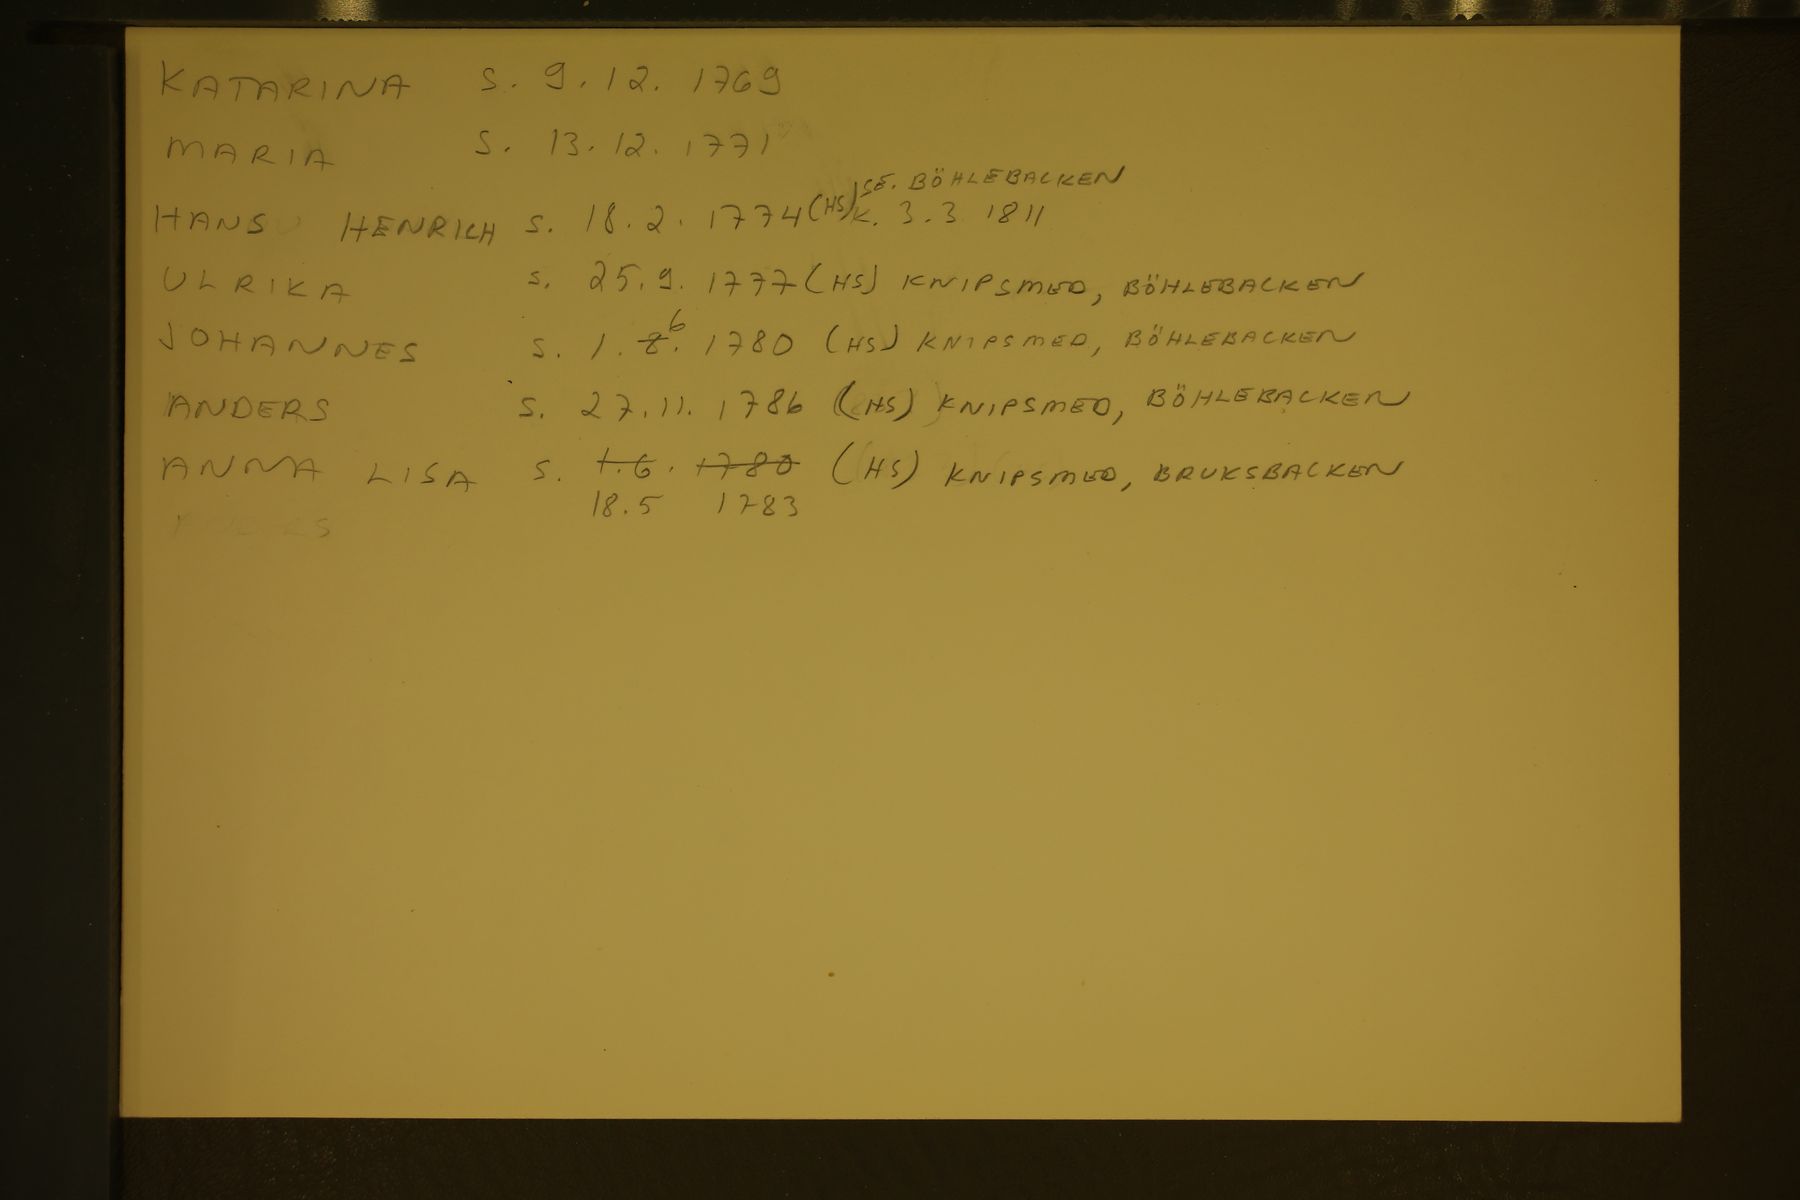 KATARINA S. 9.12. 1769
MARIA S. 13.12. 1771
SE. BÖHLEBACKEN
HANS HENRICH S. 18.2. 1774 (HS) K. 3.3 1811
ULRIKA S. 25.9. 1777 (HS) KNIPSMED, BÖHLEBACKEN
6
JOHANNES S. 1.8. 1780 (HS) KNIPSMED, BÖHLEBACKEN
ANDERS S. 27.11. 1786 (HS) KNIPSMED, BÖHLEBACKEN
ANNA LISA S. 1.6. 1780 (HS) KNIPSMED, BRUKSBACKEN
18.5 1783
ANDERS